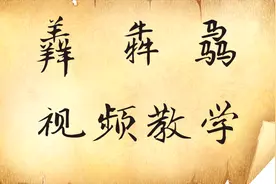 羴 犇 骉
视频教学